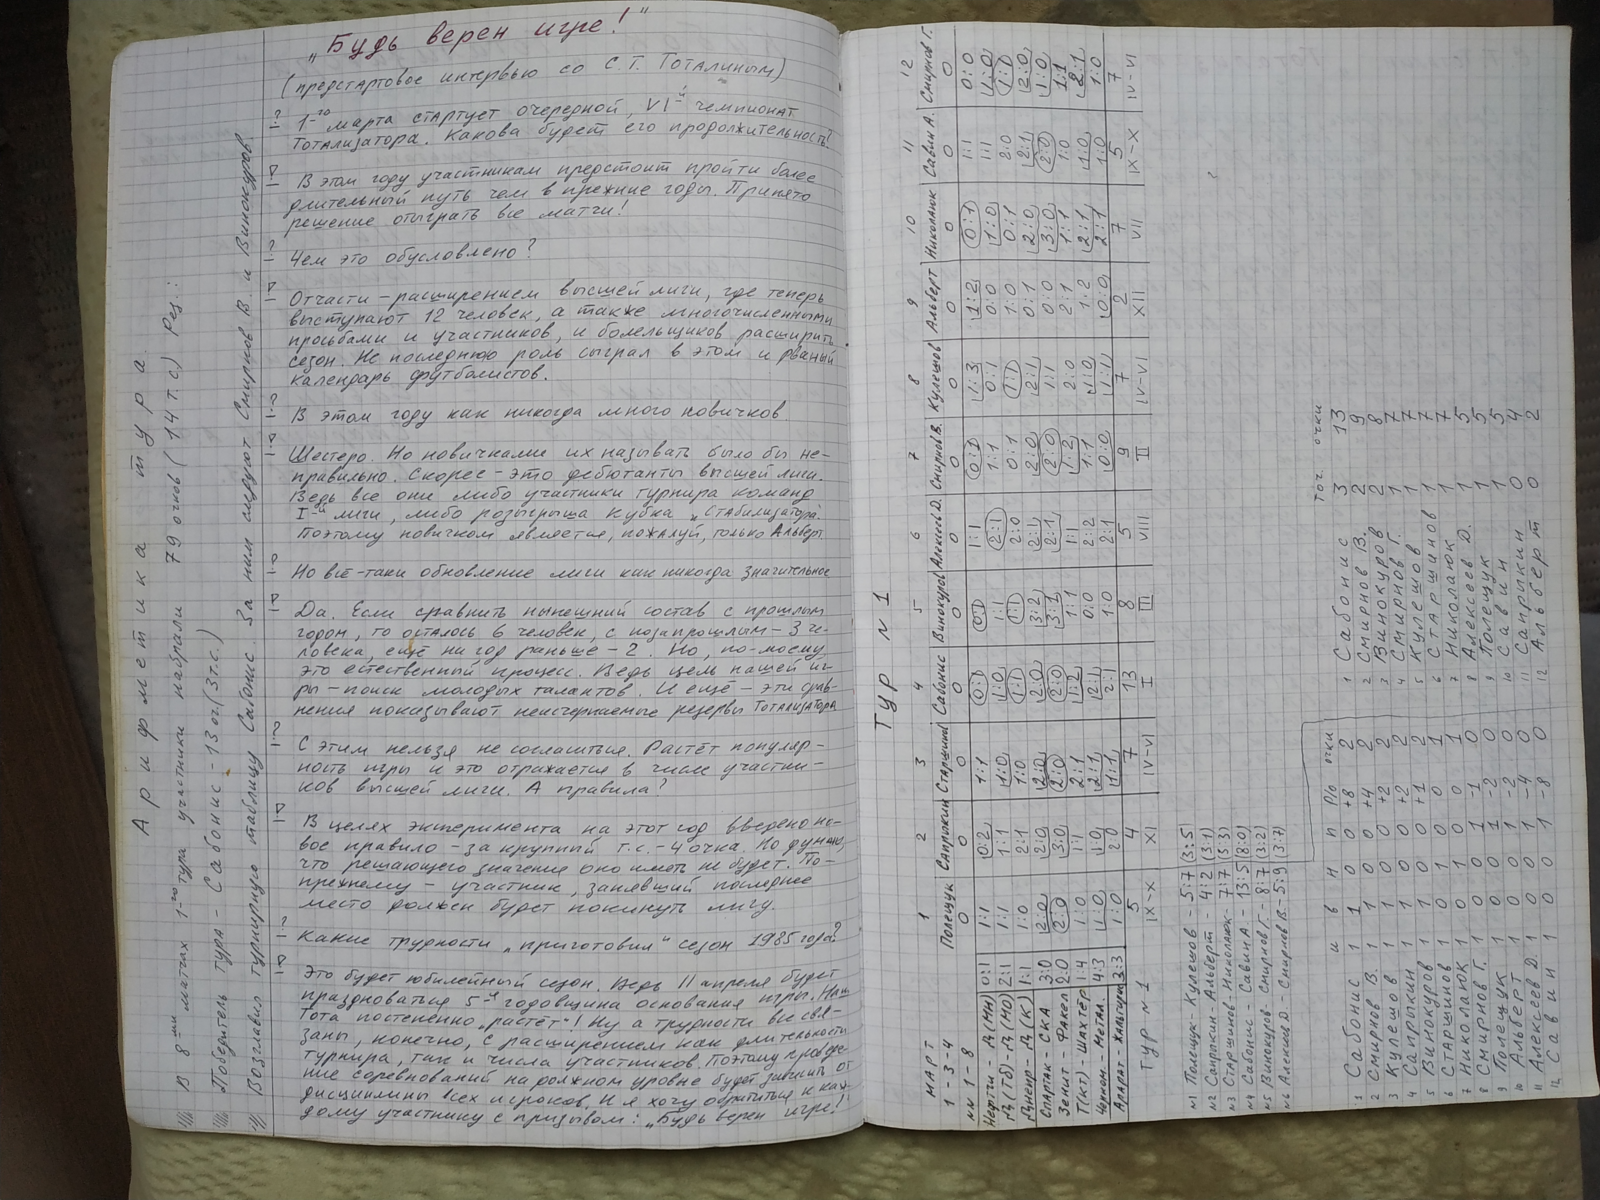 „Будь верен игре!"
(предстартовое интервью со С.Т. Тоталиным)
? - 1-го марта стартует очередной, VI-й чемпионат
Тотализатора. Какова будет его продолжительность?
! - В этом году участникам предстоит пройти более
длительный путь чем в прежние годы. Принято
решение отыграть все матчи!
? - Чем это обусловлено?
! - Отчасти - расширением высшей лиги, где теперь
выступают 12 человек, а также многочисленными
просьбами и участников, и болельщиков расширить
сезон. Не последнюю роль сыграл в этом и рваный
календарь футболистов.
? - В этом году как никогда много новичков.
! - Шестеро. Но новичками их называть было бы не-
правильно. Скорее - это дебютанты высшей лиги.
Ведь все они либо участники турнира команд
I-й лиги, либо розыгрыша кубка „Стабилизатора".
Поэтому новичком является, пожалуй, только Альберт
? - Но всё-таки обновление лиги как никогда значительное
! - Да. Если сравнить нынешний состав с прошлым
годом, то осталось 6 человек, с позапрошлым - 3 че-
ловека, ещё на год раньше - 2. Но, по-моему,
это естественный процесс. Ведь цель нашей иг-
ры - поиск молодых талантов. И ещё - эти срав-
нения показывают неисчерпаемые резервы Тотализатора
? - С этим нельзя не согласиться. Растёт популяр-
ность игры и это отражается в числе участни-
ков высшей лиги. А правила?
! - В целях эксперимента на этот год введено но-
вое правило - за крупный т.с. - 4 очка. Но думаю,
что решающего значения оно иметь не будет. По-
прежнему - участник, занявший последнее
место должен будет покинуть лигу.
? - Какие трудности „приготовил" сезон 1985 года?
! - Это будет юбилейный сезон. Ведь 11 апреля будет
праздноваться 5-я годовщина основания игры. Наш
Тота постепенно „растёт"! Ну а трудности все свя-
заны, конечно, с расширением как длительности
турнира, так и числа участников. Поэтому проведе-
ние соревнований на должном уровне будет зависеть от
дисциплины всех игроков. И я хочу обратиться к каж-
дому участнику с призывом: „Будь верен игре!"
Арифметика тура.
В 8-ми матчах 1-го тура участники набрали 79 очков (14 т.с.) Рез.:
Победитель тура - Сабонис - 13 оч. (3 т.с.)
Возглавил турнирную таблицу Сабонис. За ним следуют Смирнов В. и Винокуров
ТУР N 1
МАРТ 1 2 3 4 5 6 7 8 9 10 11 12
1-3-4 Полещук Сапрыкин Старшинов Сабонис Винокуров Алексеев Д. Смирнов В. Кулешов Альберт Николаюк Савин А. Смирнов Г.
NN 1-8 0 0 0 0 0 0 0 0 0 0 0 0
Нефтчи - Д(Мн) 0:1 1:1 0:2 1:1 0:1 0:1 1:1 0:1 1:3 1:2 0:1 1:1 0:0
Д(Тб) - Д(Мо) 2:1 1:1 1:1 1:0 1:0 1:1 2:1 1:1 0:1 0:0 1:0 1:1 1:0
Днепр - Д(К) 1:1 1:0 2:1 1:0 1:1 1:1 2:0 0:1 1:1 1:0 0:1 2:0 1:1
Спартак - СКА 3:0 2:0 2:0 2:0 2:0 3:2 2:1 2:0 2:1 0:1 2:0 2:1 2:0
Зенит - Факел 2:0 2:0 3:0 2:0 2:0 3:1 2:1 2:0 1:1 0:0 3:0 2:0 1:0
Т(Кт) - Шахтёр 1:4 1:0 1:1 2:1 1:2 1:1 1:1 1:2 2:0 2:1 1:1 1:0 1:1
Черном. - Метал. 4:3 1:0 1:0 2:1 2:1 0:0 2:2 1:1 1:0 1:2 2:1 1:0 2:1
Арарат - Жальгирис 3:3 1:0 2:0 1:1 2:1 1:0 2:1 0:0 1:1 0:0 2:1 1:0 1:0
5 4 7 13 8 5 9 7 2 7 5 7
Тур N 1 IX-X XI IV-VI I III VIII II IV-VI XII VII IX-X IV-VI
N1 Полещук - Кулешов - 5:7 (3:5)
N2 Сапрыкин - Альберт - 4:2 (3:1)
N3 Старшинов - Николаюк - 7:7 (3:3)
N4 Сабонис - Савин А - 13:5 (8:0)
N5 Винокуров - Смирнов Г. - 8:7 (3:2)
N6 Алексеев Д - Смирнов В. - 5:9 (3:7)
и в н п р/о очки
1 Сабонис 1 1 0 0 +8 2
2 Смирнов В. 1 1 0 0 +4 2
3 Кулешов 1 1 0 0 +2 2
4 Сапрыкин 1 1 0 0 +2 2
5 Винокуров 1 1 0 0 +1 2
6 Старшинов 1 0 1 0 0 1
7 Николаюк 1 0 1 0 0 1
8 Смирнов Г. 1 0 0 1 -1 0
9 Полещук 1 0 0 1 -2 0
10 Альберт 1 0 0 1 -2 0
11 Алексеев Д. 1 0 0 1 -4 0
12 Савин 1 0 0 1 -8 0
Точ. очки
1 Сабонис 3 13
2 Смирнов В. 2 9
3 Винокуров 2 8
4 Смирнов Г. 1 7
5 Кулешов 1 7
6 Старшинов 1 7
7 Николаюк 1 7
8 Алексеев Д. 1 5
9 Полещук 1 5
10 Савин 1 5
11 Сапрыкин 0 4
12 Альберт 0 2